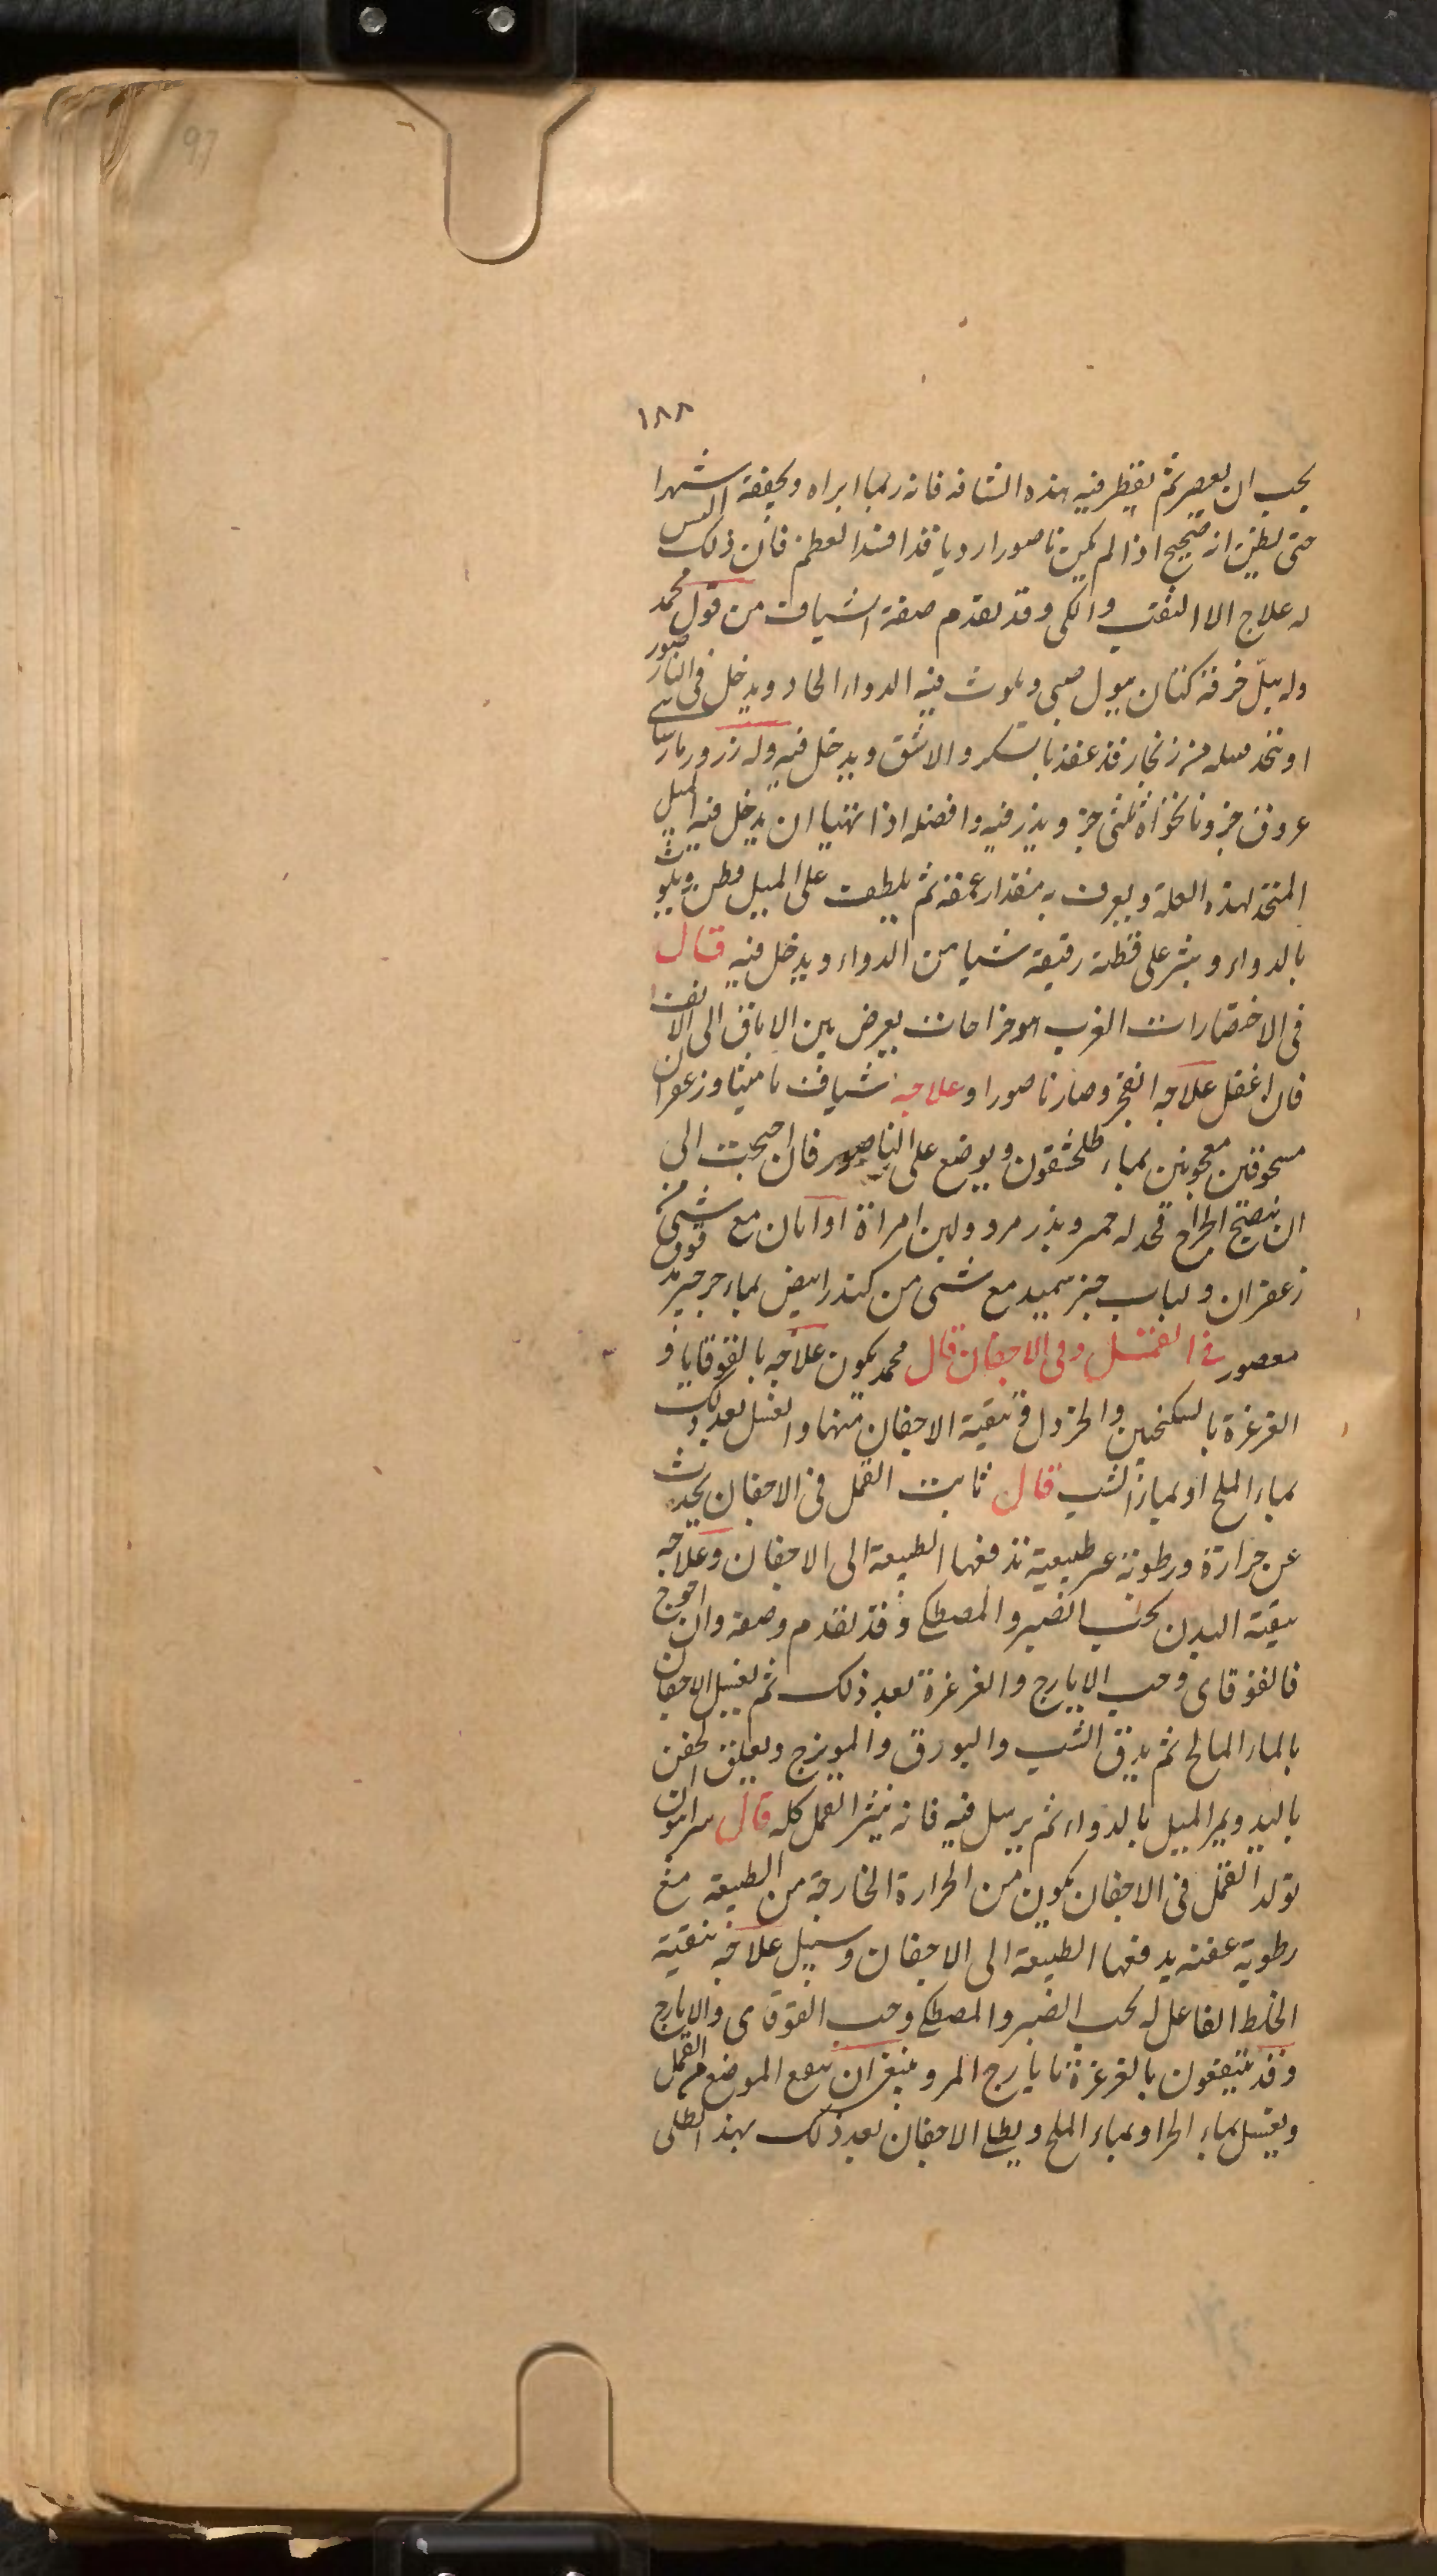 97
١٨٨
يجب ان يعصر ثم يقطر فيه هذه الشافه فانه ربما ابراه ويجففه شهرا
حتى يظن انه صحيح اذا لم يكن ناصورا رديا قد افسد العظم فان ذلك ليس
له علاج الا الثقب والكى وقد تقدم صفة الشياف من قول محمد
وله يبل خرقة كتان ببول صبى ويلوث فيه الدواء الحاد ويدخل فى الناصور
او يتخذ فتيله من زنجار قد عقد بالسكر والاشق ويدخل فيه وله زرور
عروق جزو نانخواة ثلثى جز ويذر فيه وافضله اذا تهيا ان يدخل فيه الميل
المتخذ لهذه العلة ويعرف به مقدار عمقه ثم يلطف على الميل قطن ويلوث
بالدواء وينثر على قطنه رقيقة شيا من الدواء ويدخل فيه قال
فى الاختصارات الغرب هو خراجات يعرض بين الاماق الى الانف
فان اغفل علاجه انفجر وصار ناصورا وعلاجه شياف ماميثا وزعفران
مسحوقين معجونين بماء طلخشقون ويوضع على الناصور فان احتجت الى
ان ينضج الخراج فخذ له خمر وبذر مرو ولبن امراة او اتان مع شىء من
زعفران ولباب خبز سميد مع شىء من كندر ابيض بماء جرجير مدقوق
معصور فى القمل وفى الاجفان قال محمد يكون علاجه بالقوقايا و
الغرغرة بالسكنجبين والخردل وتنقية الاجفان منها والغسل بعد ذلك
بماء الملح او بماء الشب قال ثابت القمل فى الاجفان يحدث
عن حرارة ورطوبة غير طبيعية تدفعها الطبيعة الى الاجفان وعلاجه
تنقية البدن بحب الصبر والمصطكى وقد تقدم وصفه وان احوج
فالقوقاى وحب الايارج والغرغرة بعد ذلك ثم يغسل الاجفان
بالماء المالح ثم يدق الشب والبورق والمويزج ويعلق الجفن
باليد ويمر الميل بالدواء ثم يرسل فيه فانه ينثر القمل كله قال سرابيون
تولد القمل فى الاجفان يكون من الحرارة الخارجة من الطبيعة مع
رطوبة عفنه يدفعها الطبيعة الى الاجفان وسبيل علاجه تنقية
الخلط الفاعل له بحب الصبر والمصطكى وحب القوقاى والايارج
وقد ينتفعون بالغرغرة بايارج المر وينبغى ان ينقى الموضع من القمل
ويغسل بماء الحار او بماء الملح ويطلى الاجفان بعد ذلك بهذا الطلى